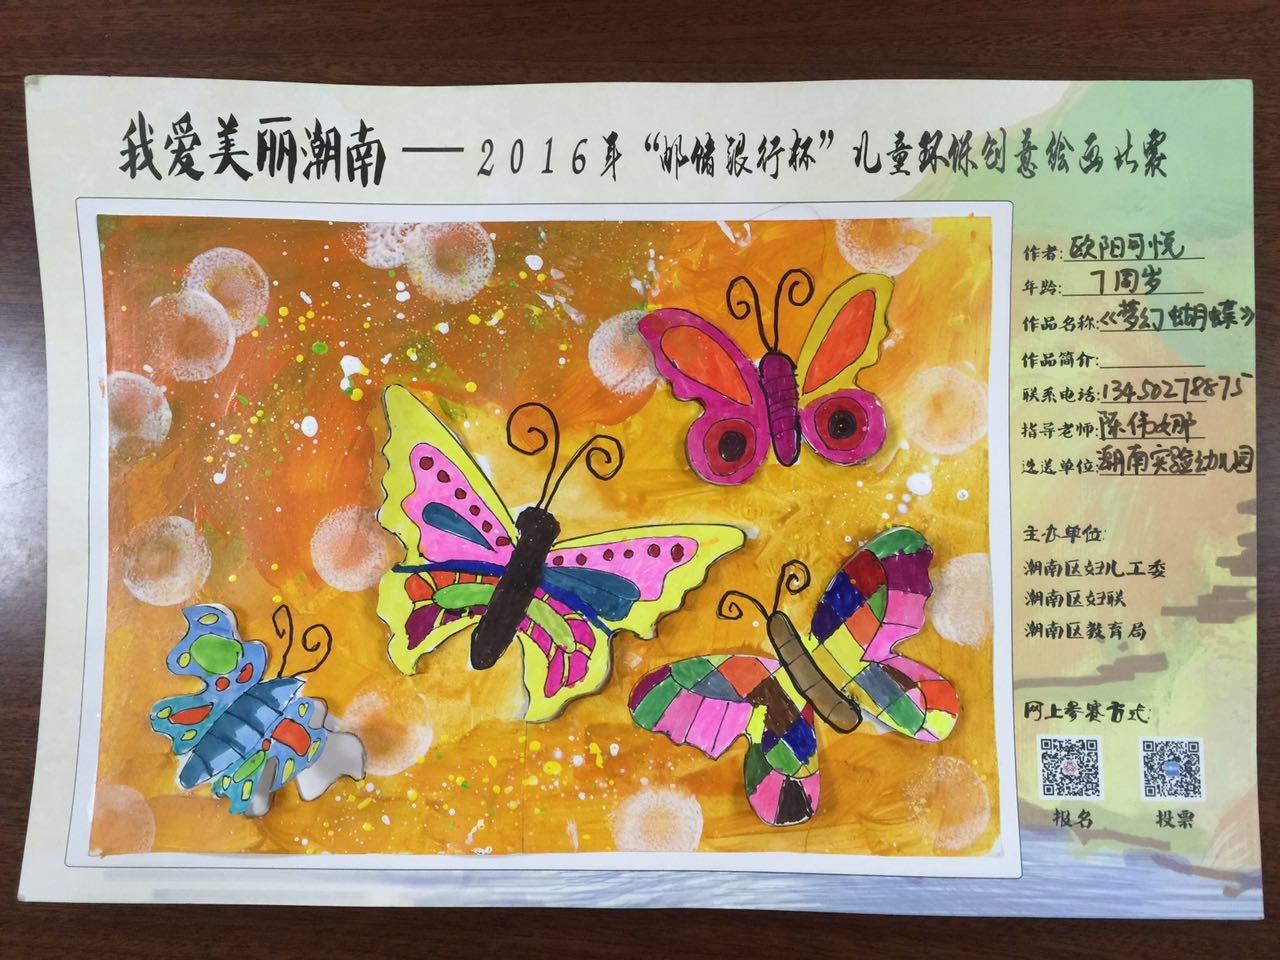 我爱美丽潮南——2016年“邮储银行杯”儿童环保创意绘画比赛
作者:欧阳可悦
年龄:7周岁
作品名称:《梦幻蝴蝶》
作品简介:
联系电话:13450278875
指导老师:陈伟娜
选送单位:潮南实验幼儿园
主办单位:
潮南区妇儿工委
潮南区妇联
潮南区教育局
网上参赛方式:
报名 投票